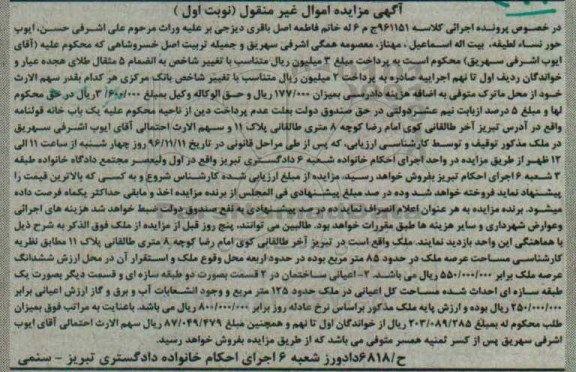 آگهی مزایده اموال غیر منقول (نوبت اول )
در خصوص پرونده اجرائی کلاسه ۹۶۱۱۵۱ج م ۶ له خانم فاطمه اصل باقری دیزجی بر علیه وراث مرحوم علی اشرفی حسن، ایوب
حور نساء لطیفه، بیت اله اسماعیل ، مهناز، معصومه همگی اشرفی سهریق و جمیله تربیت اصل خسروشاهی که محکوم علیه (آقای
ایوب اشرفی سهریق) محکوم است به پرداخت مبلغ ۳ میلیون ریال متناسب با تغییر شاخص به انضمام ۵ مثقال طلای هجده عیار و
خواندگان ردیف اول تا نهم اجراییه صادره به پرداخت ۲ میلیون ریال متناسب با تغییر شاخص بانک مرکزی هر کدام بقدر سهم الارث
خود از محل ماترک متوفی به اضافه هزینه دادرسی بمیزان ۱۷۷/۰۰۰ ریال و حق الوکاله وکیل بمبلغ ریال در حق محکوم
لها و مبلغ ۵ درصد ازبابت نیم عشردولتی در حق صندوق دولت بعلت عدم پرداخت دین از ناحیه محکوم علیه یک باب خانه قولنامه
واقع در آدرس تبریز آخر طالقانی کوی امام رضا کوچه ۸ متری طالقانی پلاک ۱۱ و سهم الارث احتمالی آقای ایوب اشرفی سهریق
در ملک مذکور توقیف و توسط کارشناسی ارزیابی، که پس از طی مراحل قانونی در تاریخ ۹۶/۱۱/۱۱ روز چهار شنبه از ساعت ۱۱ الی
۱۲ ظهر از طریق مزایده در واحد اجرای احکام خانواده شعبه ۶ دادگستری تبریز واقع در اول ولیعصر مجتمع دادگاه خانواده طبقه
۳ شعبه ۶ اجرای احکام تبریز بفروش خواهد رسید. مزایده از مبلغ ارزیابی شده کارشناس شروع و به کسی که بالاترین قیمت را
پیشنهاد نماید فروخته خواهد شد وده در صد مبلغ پیشنهادی فی المجلس از برنده مزایده اخذ و مابقی حداکثر یکماه فرصت داده
میشود. برنده مزایده به هر عنوان اعلام انصراف نماید ده درصد پیشنهادی به نفع صندوق دولت ضبط خواهد شد هزینه های اجرائی
وعوارض شهرداری و سایر هزینه ها طبق مقررات خواهد بود. طالبین می توانند، پنج روز قبل از مزایده از ملک فوق الذکر به شرح ذیل
با هماهنگی این واحد بازدید نمایند. ملک واقع است در تبریز آخر طالقانی کوی امام رضا کوچه ۸ متری طالقانی پلاک ۱۱ مطابق نظریه
کارشناسی مساحت عرصه ملک در حدود ۸۵ متر مربع بوده در حدود اربعه محل وقوع ملک و استقرار آن در محل ارزش ششدانگ
عرصه ملک برابر ۵۵۰/۰۰۰/۰۰۰ ریال می باشد. ۲- اعیانی ساختمان در ۲ قسمت بصورت دو طبقه سازه ای و قسمت دیگر بصورت یک
طبقه سازه ای احداث شده مساحت کل اعیانی در ملک حدود ۱۲۵ متر مربع و وجود انشعابات آب و برق و گاز ارزش اعیانی برابر
۲۵۰/۰۰۰/۰۰۰ ریال بوده و ارزش پایه ملک مذکور براساس نرخ عادله روز برابر ۸۰۰/۰۰۰/۰۰۰ ریال می باشد. باعنایت به مراتب فوق بمیزان
طلب محکوم له بمبلغ ۲۰۳/۰۸۹/۲۸۵ ریال از خواندگان اول تا نهم و همچنین مبلغ ۸۷/۰۴۹/۴۷۹ ریال سهم الارث احتمالی آقای ایوب
اشرفی سهریق پس از کسر ثمنیه همسر متوفی می باشد که از طریق مزایده بفروش خواهد رسید.
ح/۶۸۱۸دادورز شعبه ۶ اجرای احکام خانواده دادگستری تبریز - سنمی